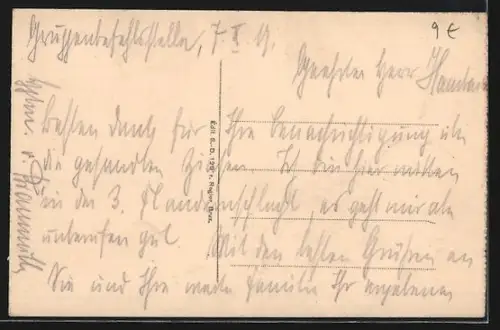 Gruppenbefehlsstelle, 7. X. 17.
9 €
Geehrter Herr
Besten Dank für Ihre Benachrichtigung über
die gesandten Ich bin hier mitten
in der 3. Flandernschlacht, es geht mir aber
unberufen gut. Mit den besten Grüßen an
Sie und Ihre werte Familie Ihr ergebener
Edit. G.-D. Brux.